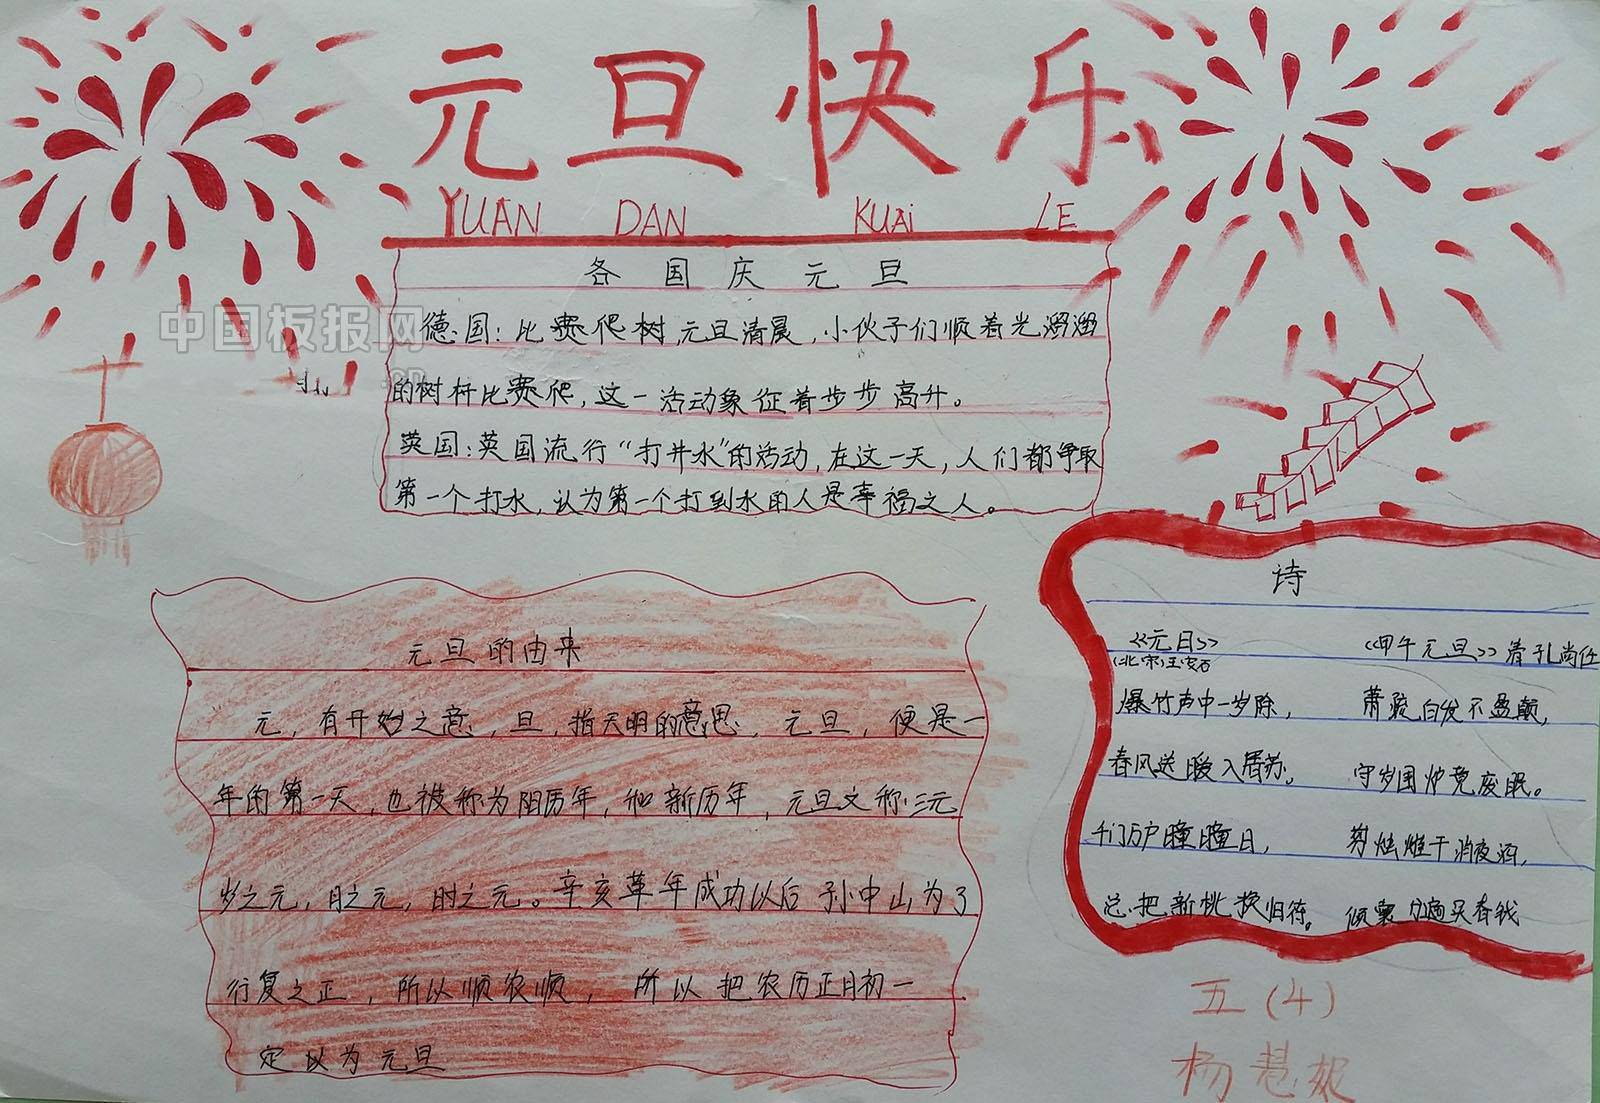 元旦快乐
YUAN DAN KUAi LE
各国庆元旦
德国：比赛爬树,元旦清晨，小伙子们顺着光溜溜
的树杆比赛爬，这一活动象征着步步高升。
英国：英国流行“打井水”的活动，在这一天，人们都争取
第一个打水，认为第一个打到水的人是幸福之人。
中国板报网
元旦的由来
元，有开始之意，旦，指天明的意思，元旦，便是一
年的第一天，也被称为阳历年，和新历年，元旦又称三元
岁之元，月之元，时之元。辛亥革年成功以后孙中山为了
行复之正，所以顺农顺，所以把农历正月初一
定以为元旦
诗
《元日》
(北宋)王安石
爆竹声中一岁除，
春风送暖入屠苏。
千门万户曈曈日，
总把新桃换旧符。
《甲午元旦》清孔尚任
萧疏白发不盈颠，
守岁围炉竟废眠。
剪烛催干消夜酒，
倾囊分遍买春钱
五(4)
杨慧